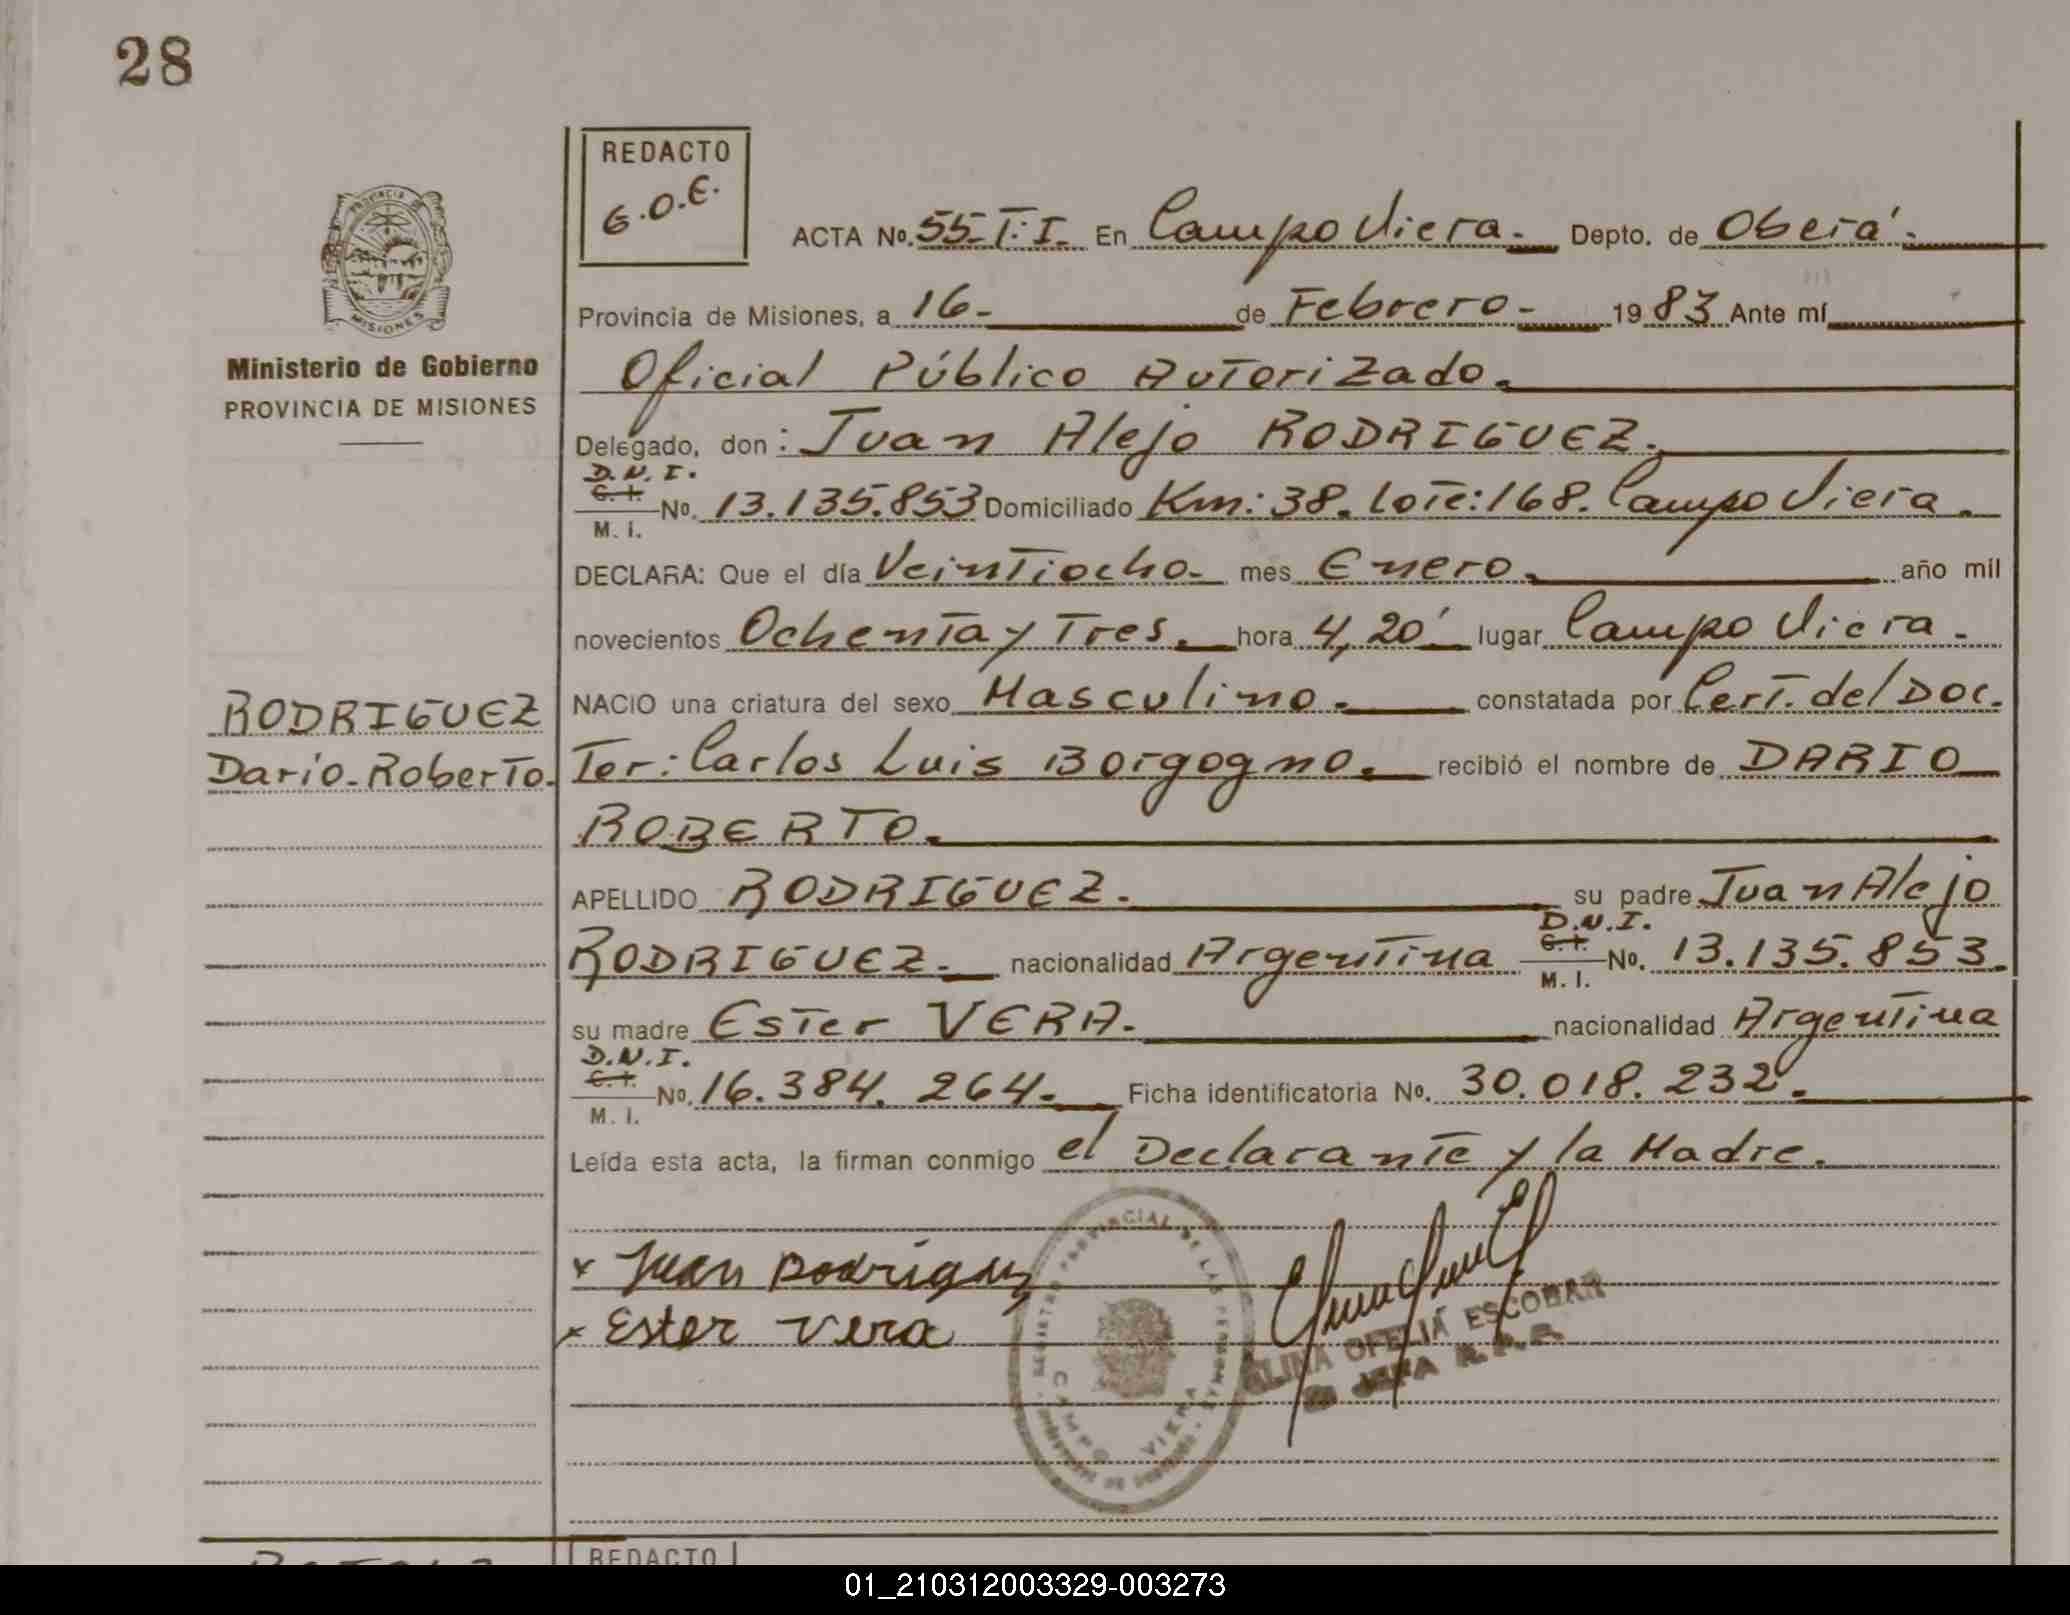 28
REDACTO
G.O.E.
ACTA Nº. 55-T:I. En Campo Viera. Depto. de Oberá.
Provincia de Misiones, a 16- de Febrero- 1983 Ante mí
Oficial Público Autorizado.
Ministerio de Gobierno
PROVINCIA DE MISIONES
Delegado, don: Juan Alejo RODRIGUEZ.
D.N.I.
C.I.
M.I. Nº. 13.135.853 Domiciliado Km:38. Lote:168. Campo Viera.
DECLARA: Que el día Veintiocho- mes Enero. año mil
novecientos Ochenta y Tres. hora 4,20´ lugar Campo Viera-
RODRIGUEZ
Darío-Roberto.
NACIO una criatura del sexo Masculino. constatada por Cert. del Doc.
Tor: Carlos Luis Borgogno. recibió el nombre de DARIO
ROBERTO.
APELLIDO RODRIGUEZ. su padre Juan Alejo
RODRIGUEZ- nacionalidad Argentina D.N.I. C.I. M.I. Nº. 13.135.853.
su madre Ester VERA. nacionalidad Argentina
D.N.I.
C.I.
M.I. Nº. 16.384.264. Ficha identificatoria Nº. 30.018.232.
Leída esta acta, la firman conmigo el Declarante y la Madre.
x Juan Rodriguez
x Ester Vera
REGISTRO PROVINCIAL DE LAS PERSONAS
CAMPO VIERA
ALINA OFELIA ESCOBAR
JEFA
REDACTO
01_210312003329-003273